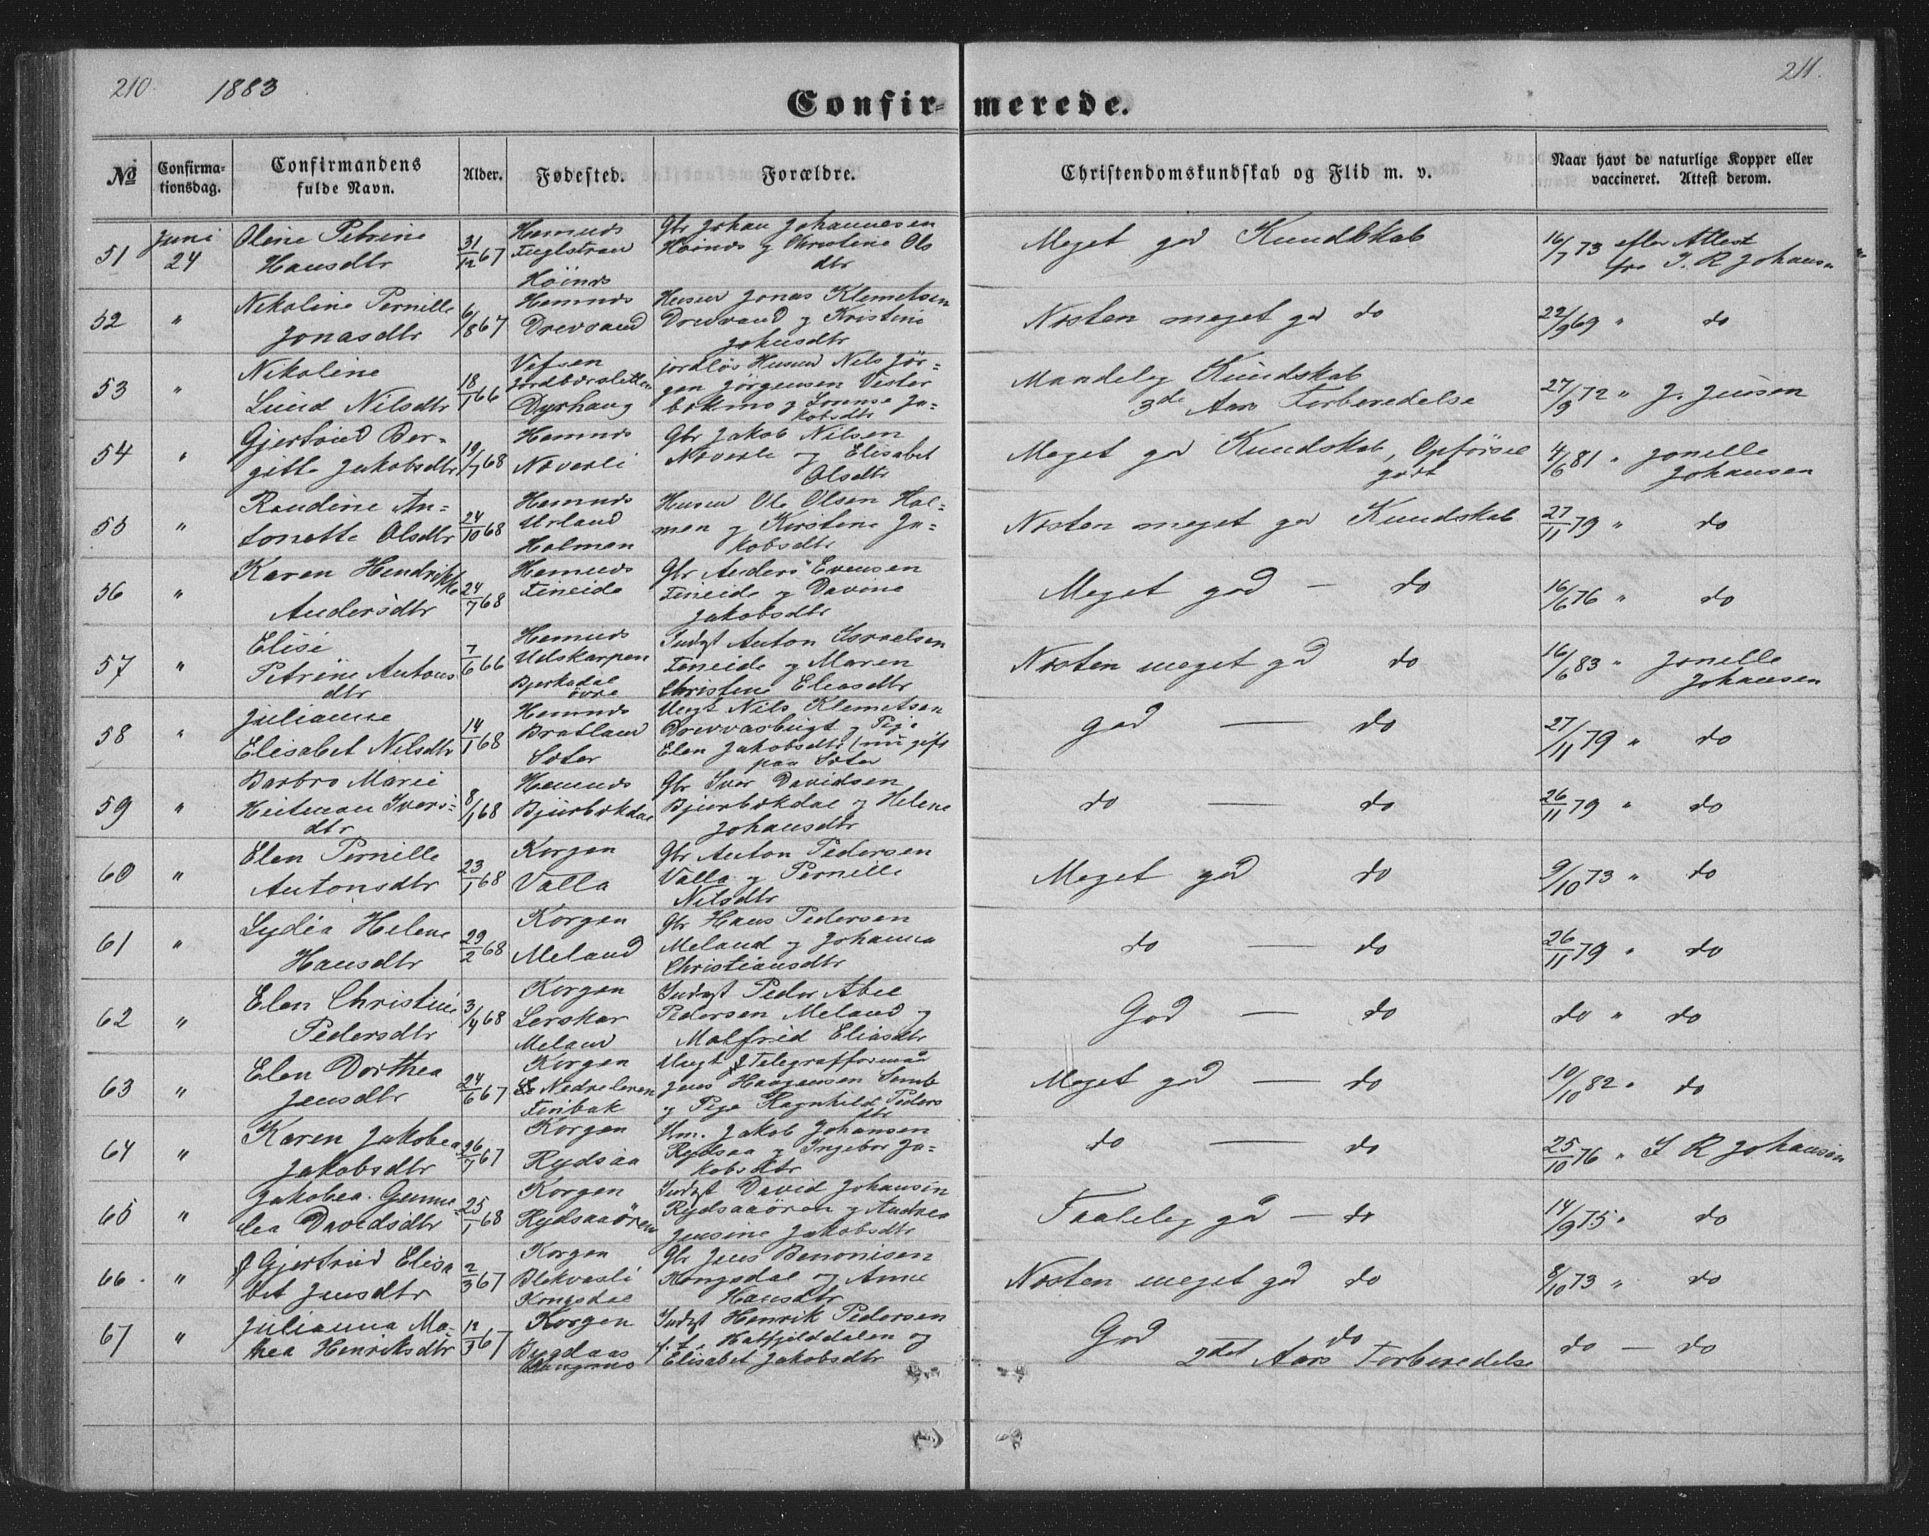 210. 1883
211.
Confirmerede.
No
Confirmationsdag.
Confirmandens fulde Navn.
Alder.
Fødested.
Forældre.
Christendomskundskab og Flid m. v.
Naar havt de naturlige Kopper eller vaccineret. Attest derom.
51 Juni 24 Oline Petrine Hansdtr 31/12 67 Hemnes Fuglstran Höinæs Gbr Johan Johannesen Höinæs og Christine Ols dtr Meget god Kundskab 16/7 73 efter Attest fra I. R Johansn
52 " Nikoline Pernille Jonasdtr 6/8 67 Hemnes Drevvand Husm Jonas Klemetsen Drevvand og Kristine Johnsdtr Næsten meget god do 22/9 69 " do
53 " Nikoline Lund Nilsdtr 18/1 66 Vefsen Jordbærsletten Dyrhaug jordløs Husm Nils Jörgen Jörgensen Vester Jakobsdtr Mandelig Kundskab 3de Aars Forberedelse 27/9 72 " J. Jensen
54 " Gjertrud Bergitte Jakobsdtr 19/7 68 Hemnes Næverli Gbr Jakob Nilsen Næverli og Elisabet Olsdtr Meget god Kundskab, Opförsel godt 4/6 81 " Jonelle Johansen
55 " Randine Antonette Olsdtr 24/10 68 Hemnes Urland Holmen Husm Ole Olsen Holmen og Kirstine Jakobsdtr Næsten meget god Kundskab 27/11 79 " do
56 " Karen Hendrikke Andersdtr 24/7 68 Hemnes Fineide Gbr Anders Evensen Fineide og Davine Jakobsdtr Meget god — do 16/6 76 " do
57 " Elise Petrine Antonsdtr 7/6 66 Hemnes Utskarpen Bjerkadal övre Indgt Anton Israelsen Fineide og Maren Christine Eliasdtr Næsten meget god do 16/6 83 " Jonelle Johansen
58 " Julianne Elisabet Nilsdtr 14/1 68 Hemnes Bratland Sæter Ungk Nils Klemetsen Drevvasbugt og Pige Elen Jakobsdtr (nu gift paa Sæter god — do 27/11 79 " do
59 " Barbro Marie Heitman Iversdtr 8/1 68 Hemnes Bjurbækdal Gbr Iver Davidsen Bjurbækdal og Helene Johansdtr do — do 26/11 79 " do
60 " Elen Pernille Antonsdtr 23/1 68 Korgen Valla Gbr Anton Pedersen Valla og Pernille Nilsdtr Meget god do 9/10 73 " do
61 " Lydia Helene Hansdtr 29/2 68 Korgen Meland Gbr Hans Pedersen Meland og Johanna Christiansdtr do — do 26/11 79 " do
62 " Elen Christine Pedersdtr 3/4 68 Korgen Lerskar Meland Indgt Peder Abel Pedersen Meland og Malfrid Eliasdtr God — do do " do
63 " Elen Dorthea Jensdtr 24/6 67 Korgen Nedreleren Finbak Ungk Telegrafformand Jens Haagensen Semb og Pige Ragnhild Pedersdtr Meget god — do 10/10 82 " do
64 " Karen Jakobea Jakobsdtr 26/7 67 Korgen Rydsaa Hm. Jakob Johansen Rydsaa og Ingebor Jakobsdtr do — do 25/10 76 " I R Johansen
65 " Jakobea Gunnelea Davidsdtr 25/1 68 Korgen Rydsaaören Indgt David Johansen Rydsaaören og Andrea Jensine Jakobsdtr Taalelig god — do 14/9 75 " do
66. " Gjertrud Elisabet Jensdtr 2/3 67 Korgen Blekvasli Kongsdal Gbr Jens Benonisen Kongsdal og Anne Hansdtr Næsten meget god do 8/10 73 " do
67 " Julianna Mathea Henriksdtr 12/3 67 Korgen Bygdaas Indgt Henrik Pedersen f. t. Hatfjelddalen og Elisabet Jakobsdtr God do 2det Aars Forberedelse do — do